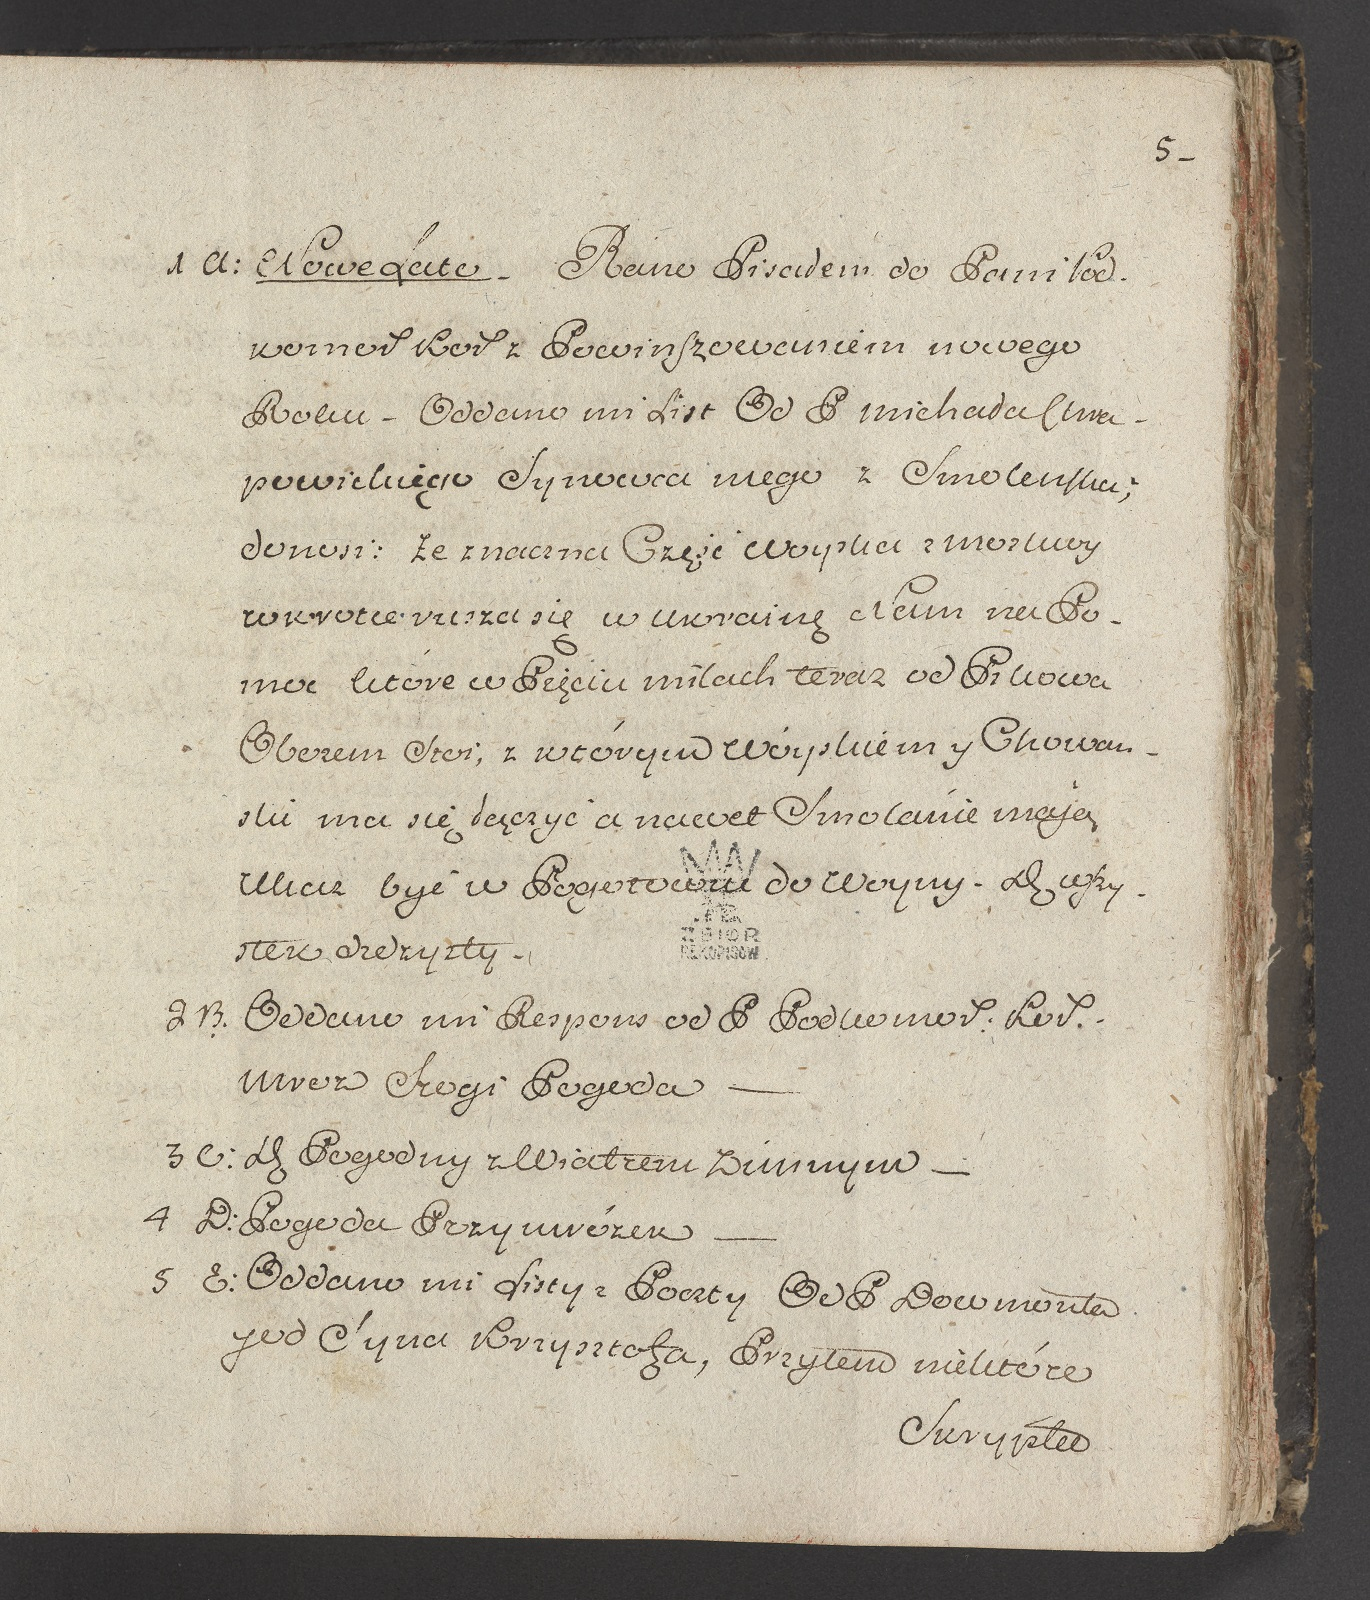 5-
1 A: Nowe Lato - Rano Pisałem do Pani Pod-
komoł Koł z Powinszowaniem nowego
Roku - Oddano mi List Od P michała Chra-
powickięgo Synowca mego z Smolenska;
donosi: że znaczna Część woyska z moskwy
wkrotce rusza się w ukrainę Nam na Po-
moc które w Pięciu milach teraz od Pskowa
Obozem Stoi, z którym Wóyskiem y Chowan-
ski ma się łączyć a nawet Smolanie mają
Ukaz być w Pogotowiu do Woyny. Dz wszy-
stek dżdżysty -
ZBIOR
RĘKOPISÓW
2 B. Oddano mi Respons od P Podkomoł: Koł. -
mroz Srogi Pogoda —
3 C: Dz Pogodny z Wiatrem Zimnym —
4 D: Pogoda Przymrózek —
5 E: Oddano mi Listy z Poczty Od P Dowmonta
y od Syna Krzysztofa, Przytem niektóre
Skrypta